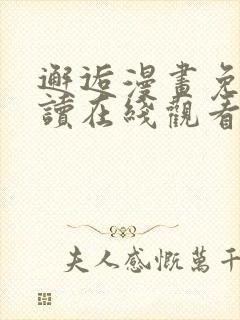 邂逅漫畫免
讀在綫觀看
夫人感慨萬千